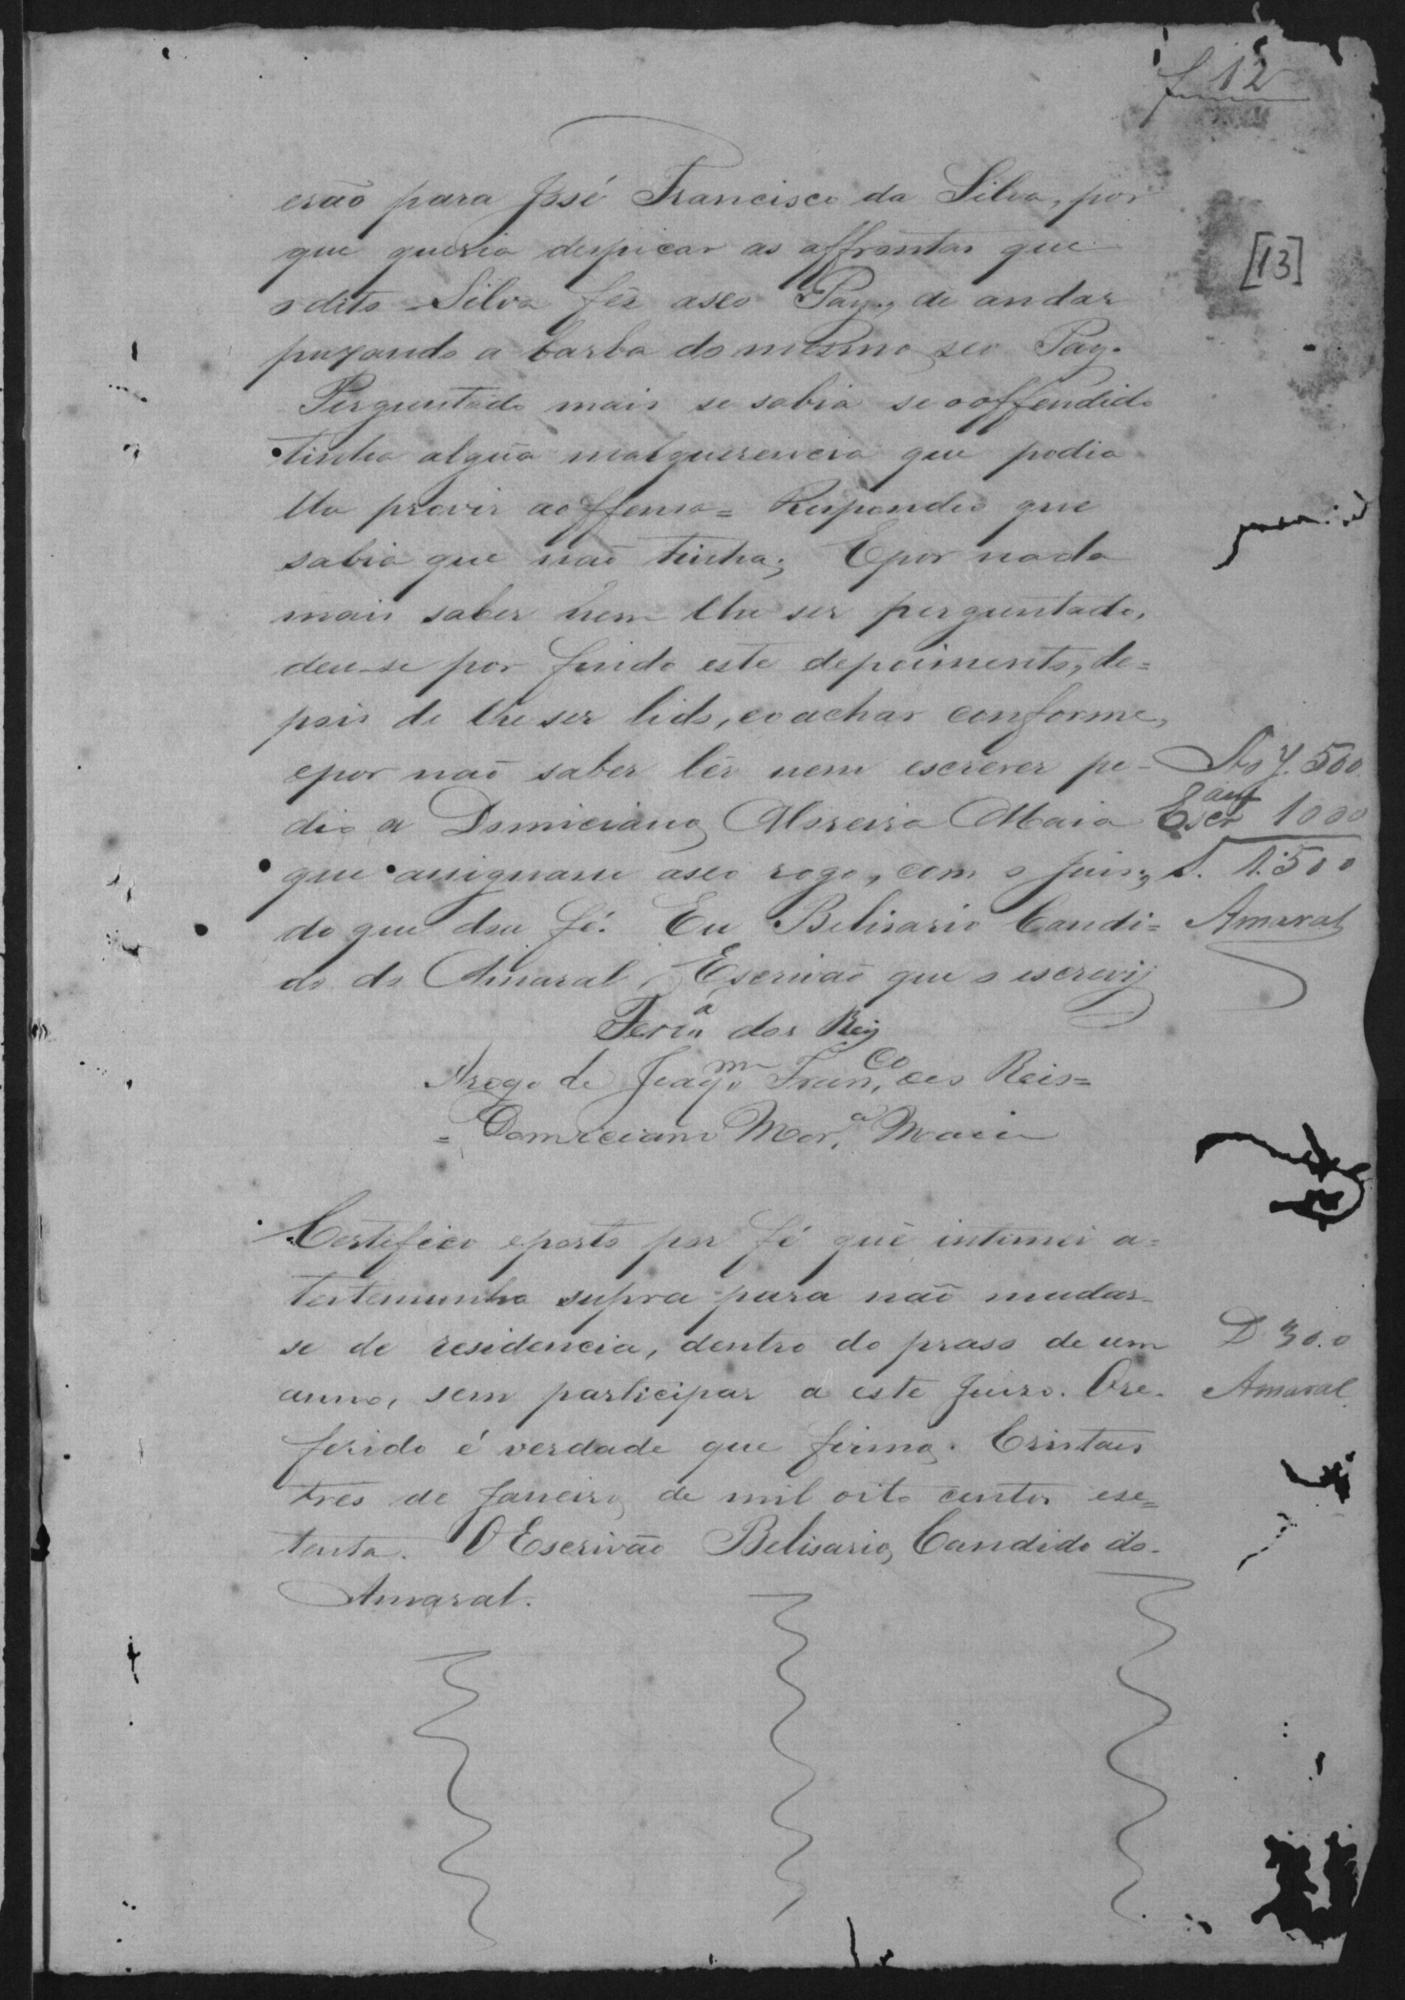 f 12
[13]
erão para José Francisco da Silva, por
que queria despicar as affrontas que
o dito Silva fez aseo Pay, de andar
puxando a barba do mesmo seo Pay.
Perguntado mais se sabia se o offendido
tinha algũa malquerencia que podia
lhe provir a offensa = Respondeo que
sabia que não tinha; E por nada
mais saber nem lhe ser perguntado,
deu-se por findo este depoimento, de=
pois de lhe ser lido, e o achar conforme,
e por não saber lêr nem escrever pe-
dio a Domiciano Moreira Maia
que assignasse aseo rogo, com o Juiz,
do que dou fé. Eu Belisario Candi=
do do Amaral, Escrivão que o escrevij
500
Escr 1000
S. 1.500
Amaral
Ferra dos Reis
Arogo de Joaqm Franco dos Reis=
= Domiciano Mora Maia
Certifico e porto por fé que intimei a=
testemunha supra para não mudar-
se de residencia, dentro do praso de um
anno, sem participar a este Juizo. O re-
ferido é verdade que firmo. Cristais
tres de Janeiro de mil oito centos e se=
tenta. O Escrivão Belisario Candido do
Amaral.
D 300
Amaral